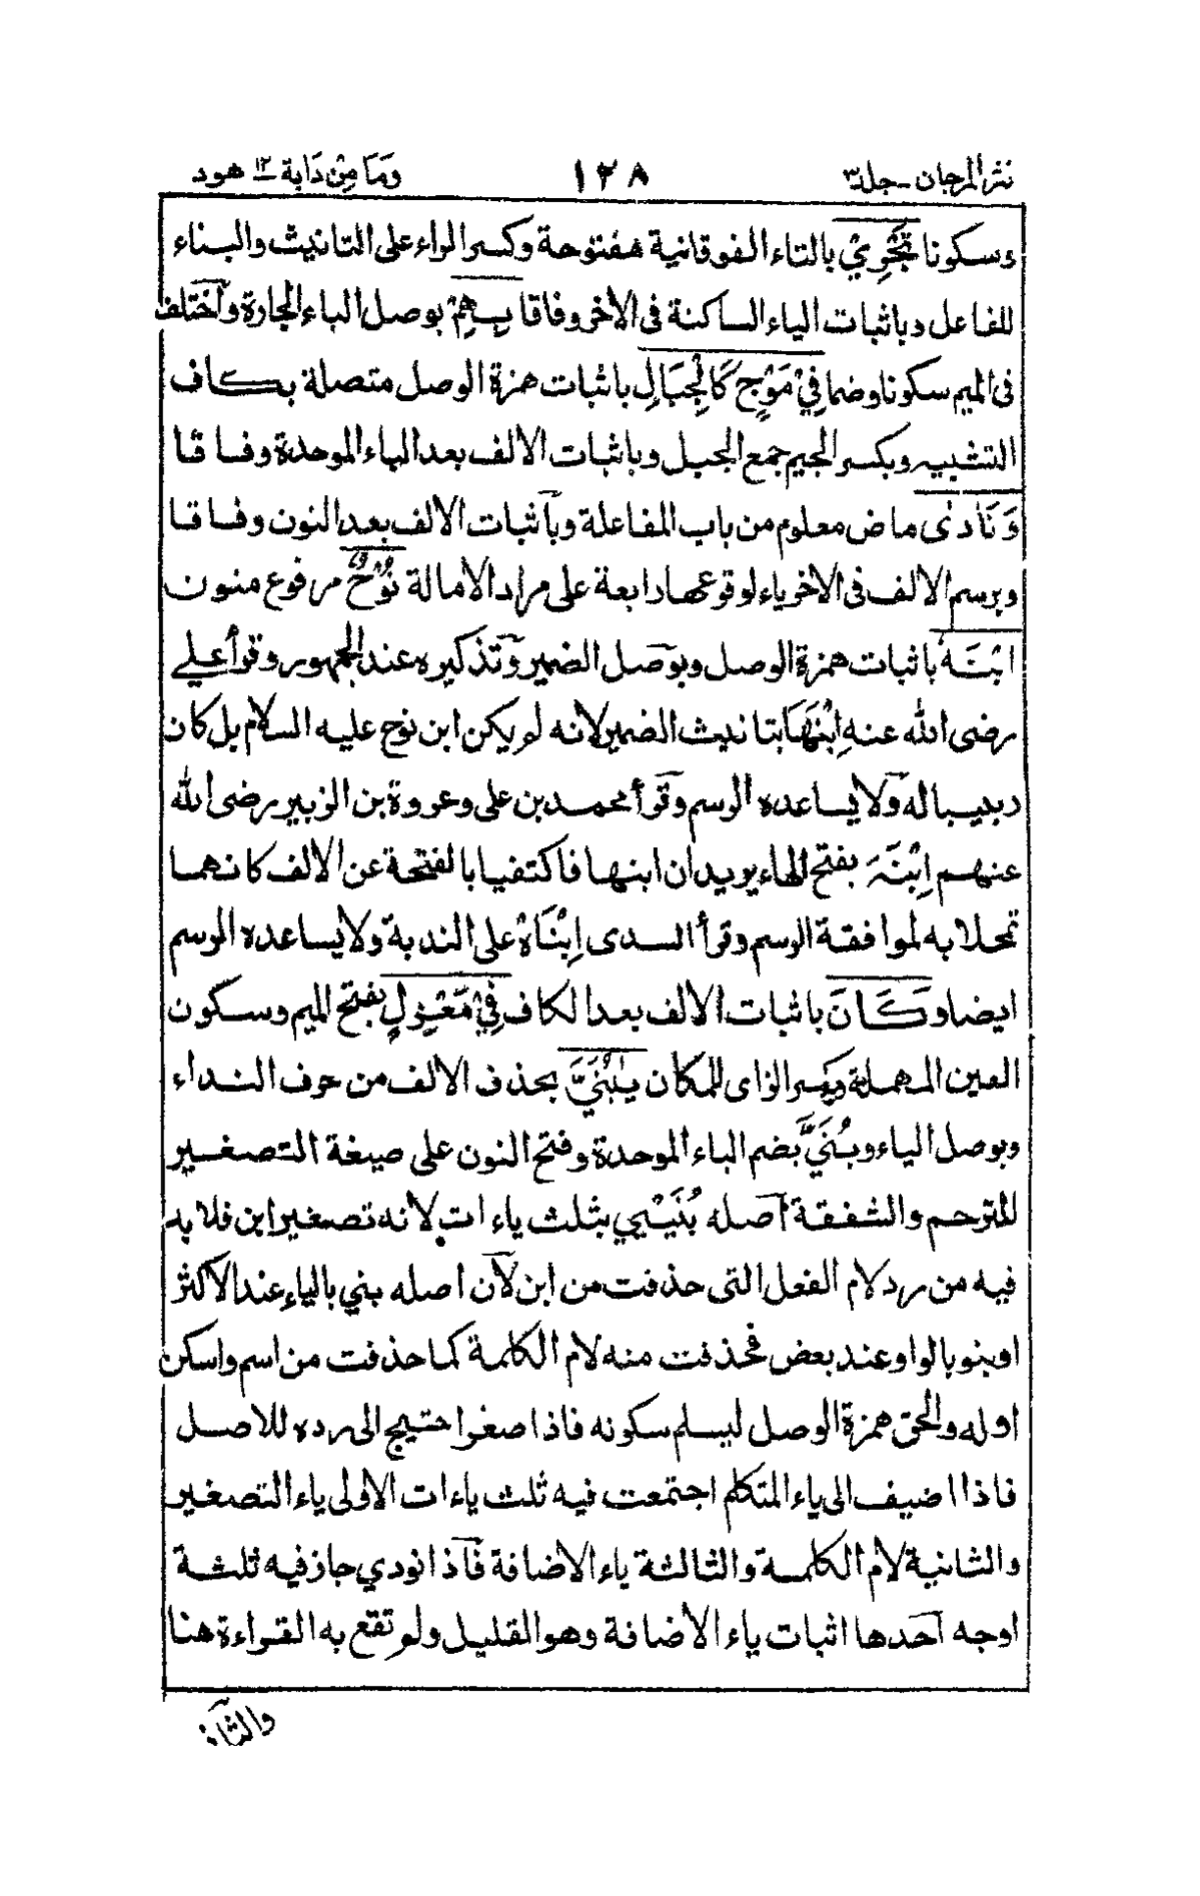 نثر المرجان - جلد ٣ ١٢٨ وَمَا مِنْ دَابة ١٢ هود
وسكونا تَجْرِيْ بالتاء الفوقانية مفتوحة وكسر الراء على التانيث والبناء
للفاعل و باثبات الياء الساكنة فى الاخر وفاقا بِهِمْ بوصل الباء الجارة واختلف
فى الميم سكونا وضما فِيْ مَوْجٍ كَالْجِبَالِ باثبات همزة الوصل متصلة بكاف
التشبيه وبكسر الجيم جمع الجبل وباثبات الالف بعد الباء الموحدة وفاقا
وَنَادٰى ماض معلوم من باب المفاعلة وباثبات الالف بعد النون وفاقا
وبرسم الالف فى الاخر ياء لوقوعها رابعة على مراد الامالة نُوْحٌ مرفوع منون
ابْنَهٗ باثبات همزة الوصل وبوصل الضمير وتذكيره عند الجمهور وقرأ علي
رضى الله عنه اِبْنَهَا بتانيث الضمير لانه لم يكن ابن نوح عليه السلام بل كان
ربيبا له ولا يساعده الرسم وقرأ محمد بن على وعروة بن الزبير رضى الله
عنهم اِبْنَهَ بفتح الهاء يريدان ابنها فاكتفيا بالفتحة عن الالف كانهما
تمحلا به لموافقة الرسم وقرأ السدى اِبْنَاهْ على الندبة ولا يساعده الرسم
ايضا وَكَانَ باثبات الالف بعد الكاف فِيْ مَعْزِلٍ بفتح الميم وسكون
العين المهملة وكسر الزاى للمكان يٰبُنَيَّ بحذف الالف من حرف النداء
وبوصل الياء وبُنَيَّ بضم الباء الموحدة وفتح النون على صيغة التصغير
للترحم والشفقة اصله بُنَيْيِي بثلث ياءات لانه تصغير ابن فلابد
فيه من رد لام الفعل التى حذفت من ابن لان اصله بني بالياء عند الاكثر
اوبنو بالواو عند بعض فحذفت منه لام الكلمة كما حذفت من اسم واسكن
اوله والحق همزة الوصل ليسلم سكونه فاذا صغر احتيج الى رده للاصل
فاذا اضيف الى ياء المتكلم اجتمعت فيه ثلث ياءات الاولى ياء التصغير
والثانية لام الكلمة والثالثة ياء الاضافة فاذا نودي جاز فيه ثلثة
اوجه احدها اثبات ياء الاضافة وهو القليل ولم تقع به القراءة هنا
والثانى